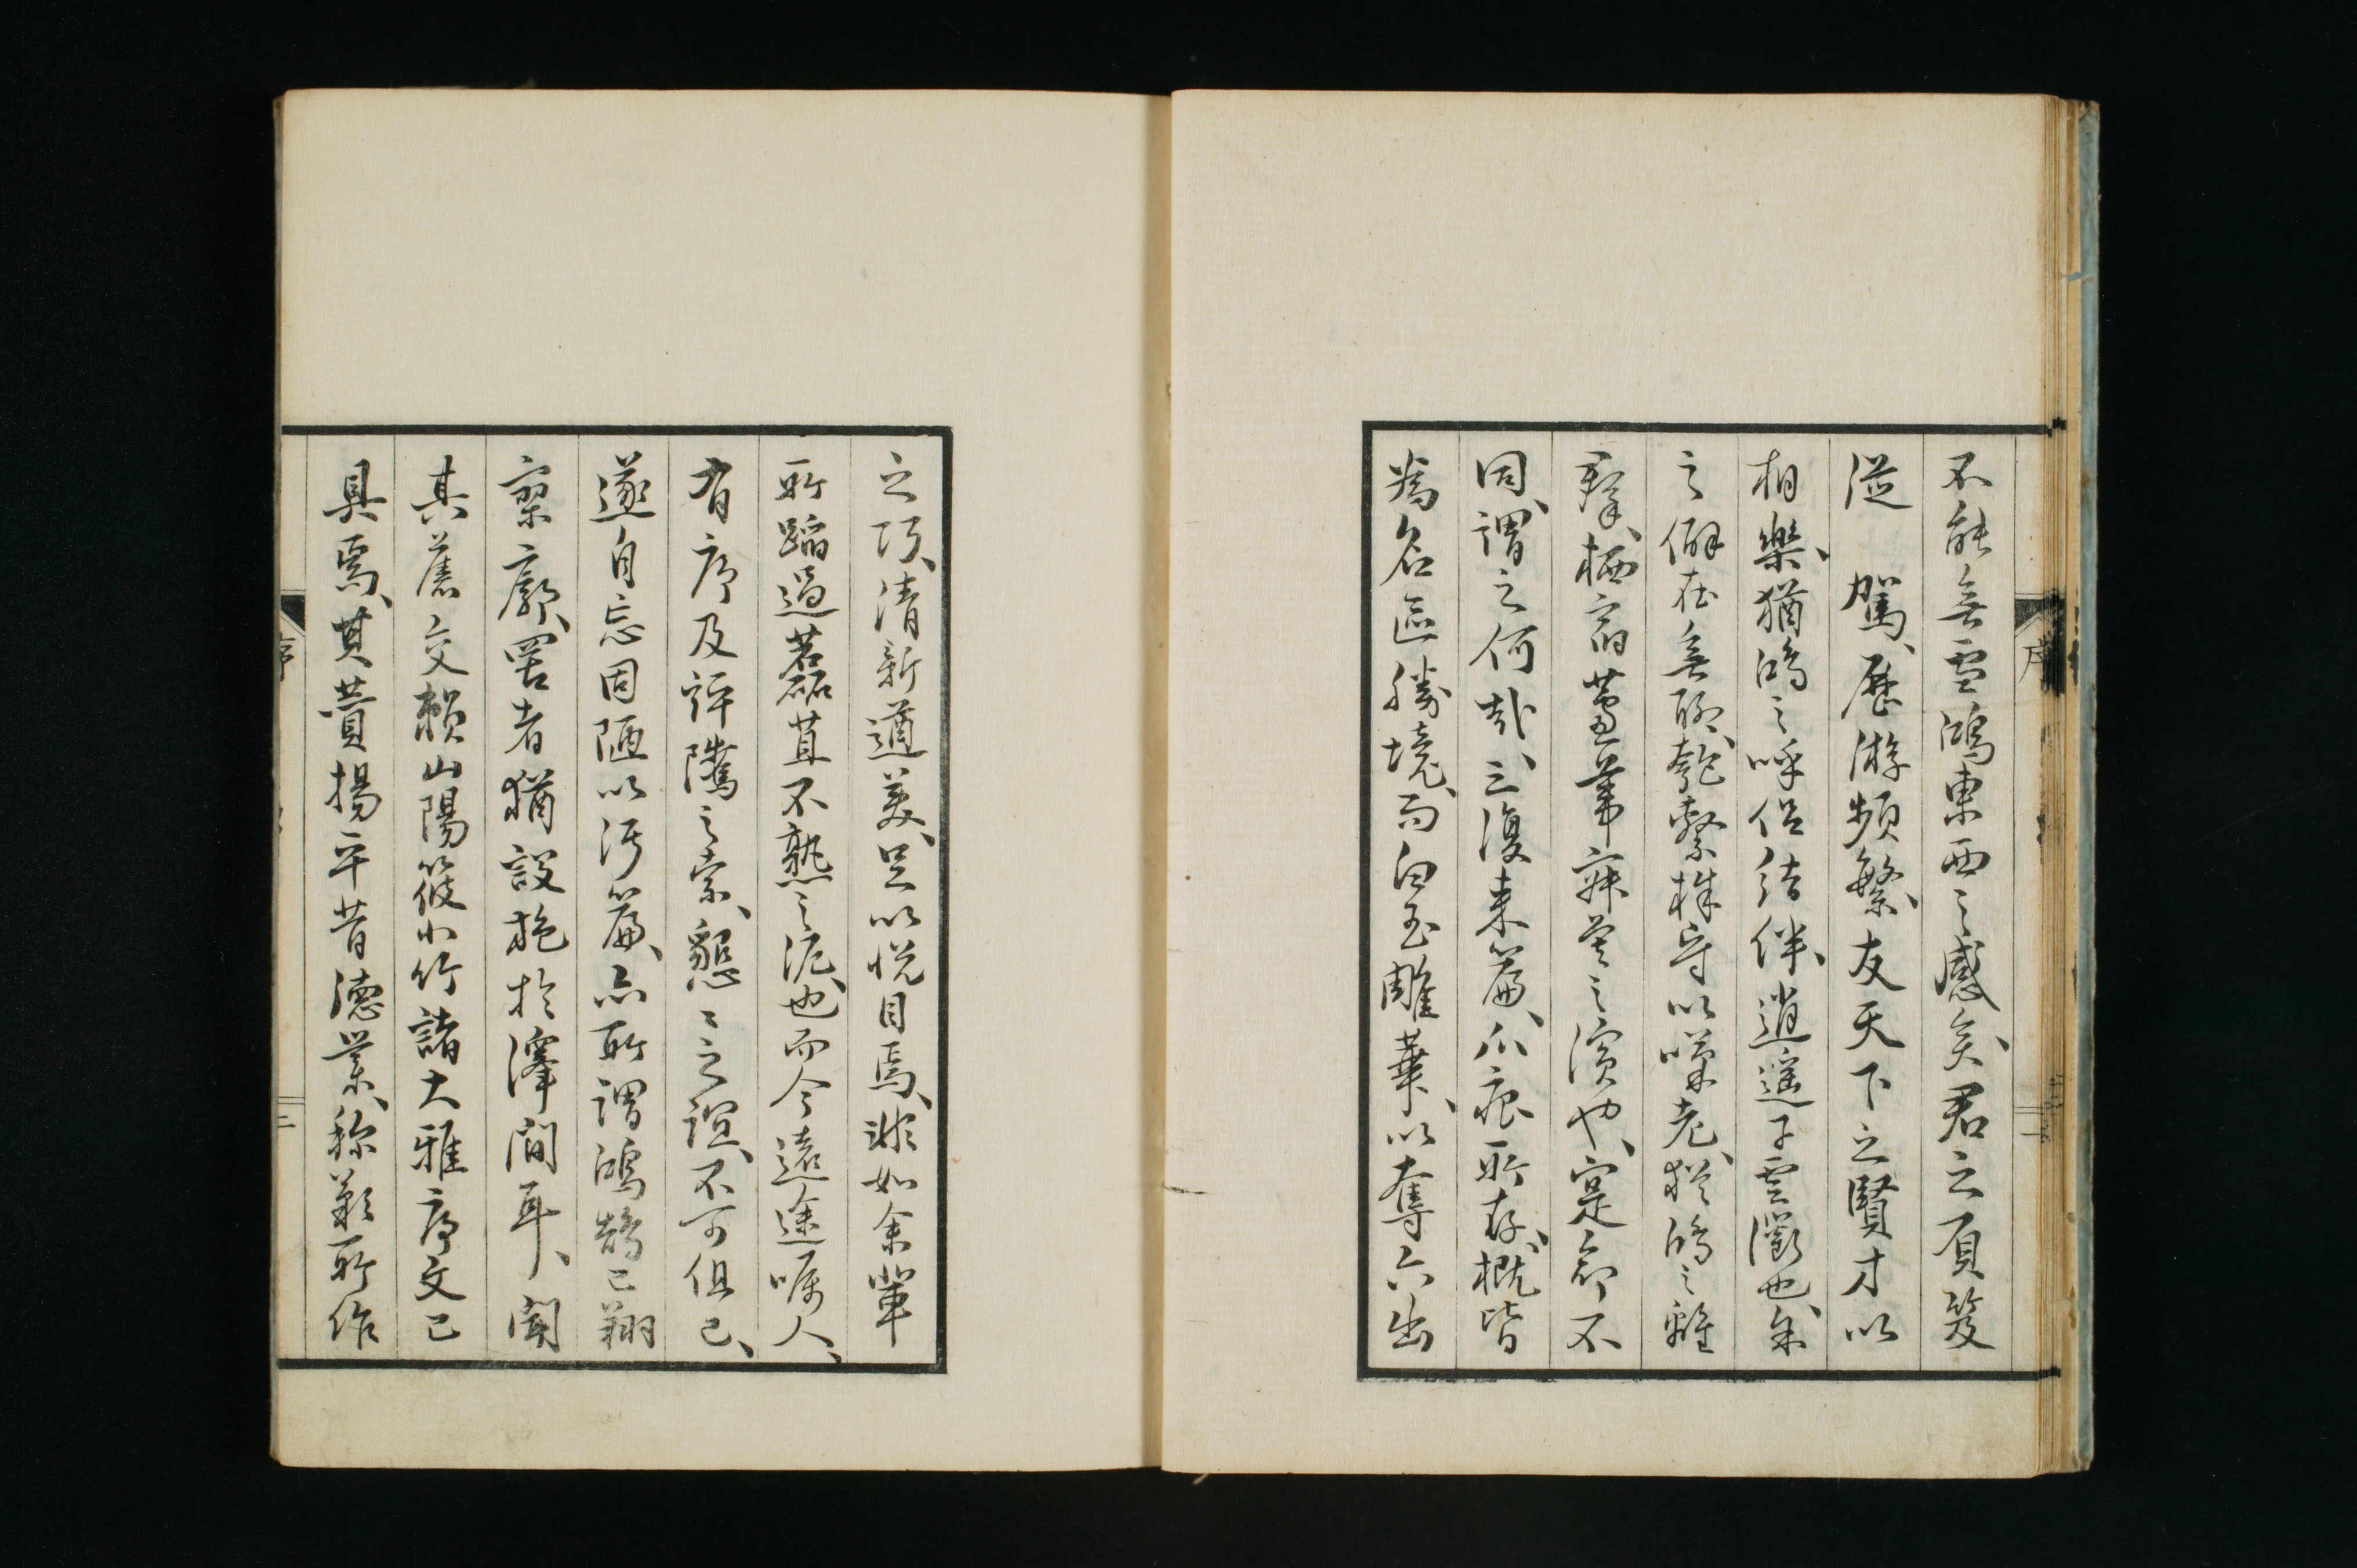 不能無雪鴻東西之感矣、君之負笈
從 駕、歷游頻繁、友天下之賢才以
相樂、猶鴻之呼侶結伴、逍遙于雲漢也、余
之僻在無聊、匏繫株守以嘆老、猶鴻之離
群、栖宿葦寂寞之濱也、寔命不
同、謂之何哉、三復来篇、爪痕所存、概皆
為名區勝境、而白玉雕華、以奪六出
之巧、清新遒美、足以悅目焉、非如余輩
所蹈過茗磊苴不熟之泥也而今遠途囑人、
有序及評隲之索、懇々之誼、不可但已、
遂自忘固陋以汚篇、亦所謂鴻鵠已翔
寥廓、罟者猶設施於澤間耳、聞
其舊交賴山陽篠小竹諸大雅序文已
具焉、其賛揚平昔德業、称歎所作
序
二
序
三